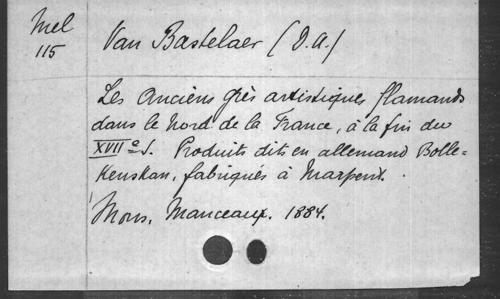 Mel
115
Van Bastelaer (D.A.)
Les Anciens grès artistiques flamands
dans le Nord de la France, à la fin du
XVIIe S. Produits dits en allemand Bolle=
Kenskan, fabriqués à Marpent.
Mons, Manceaux. 1884.